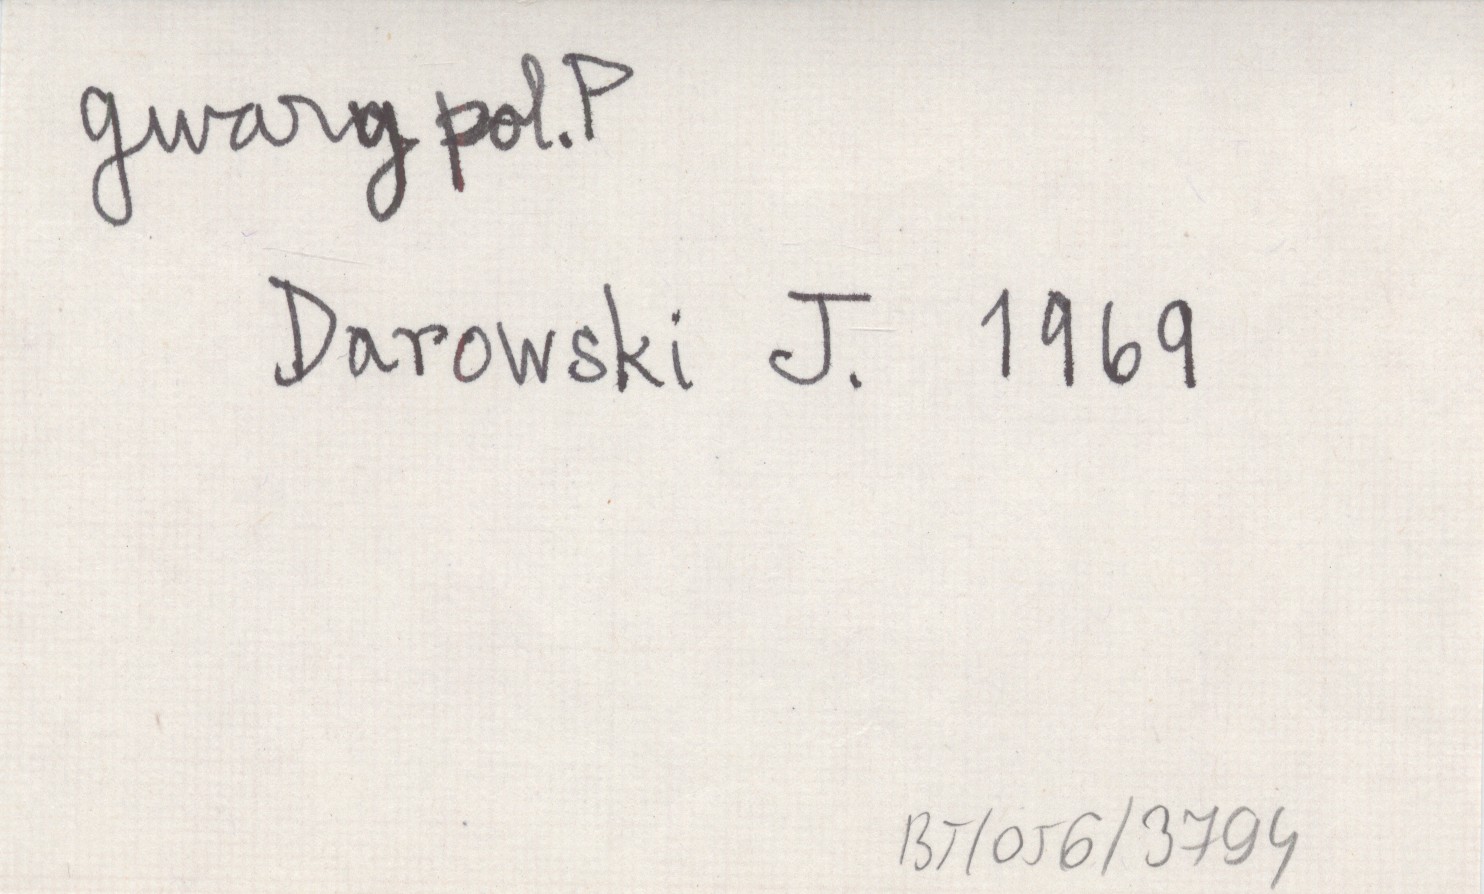 gwary pol. P
Darowski J. 1969
BT/056/3794